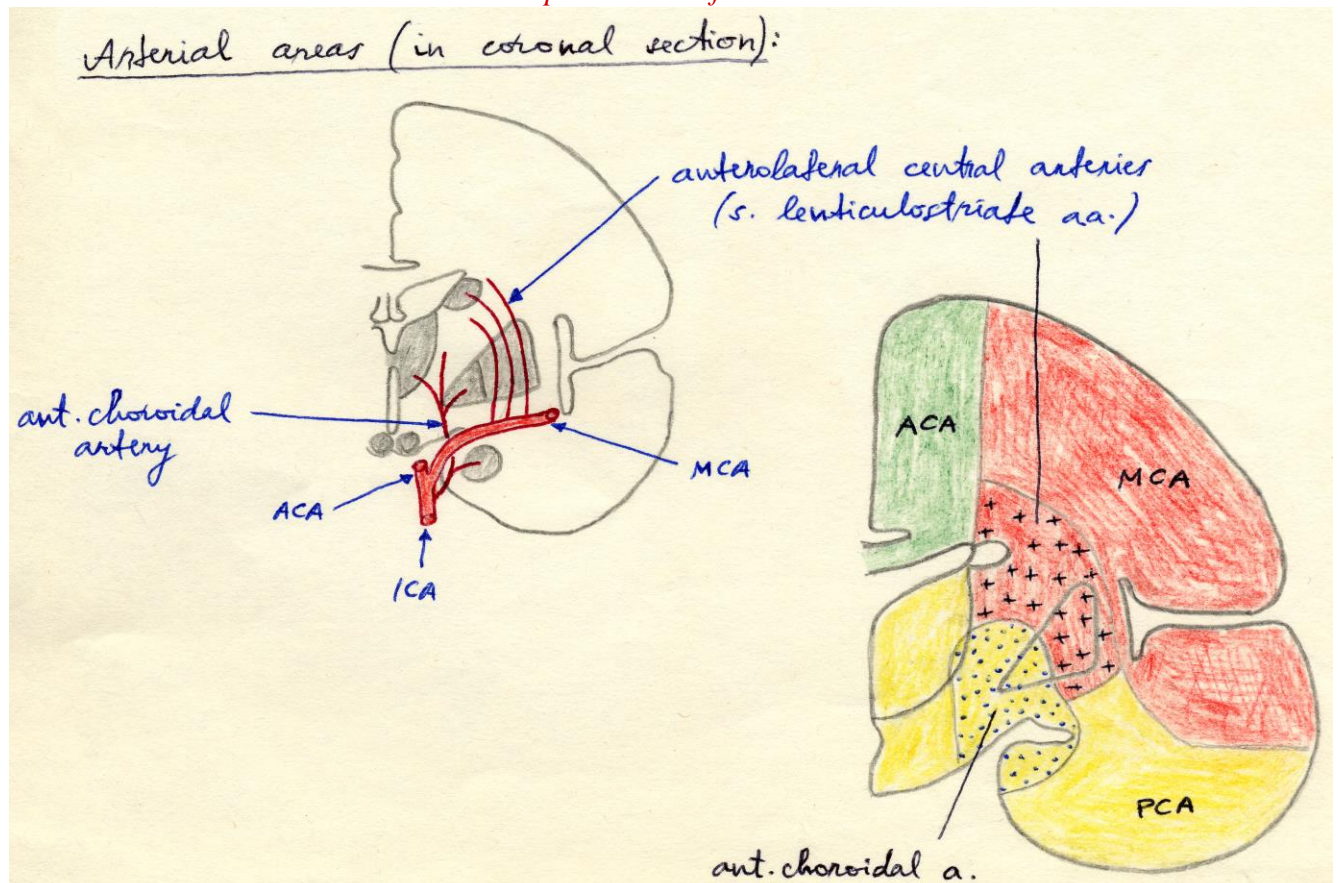 Arterial areas (in coronal section):
anterolateral central arteries
(s. lenticulostriate aa.)
ant. choroidal
artery
MCA
ACA
ICA
ACA
MCA
PCA
ant. choroidal a.